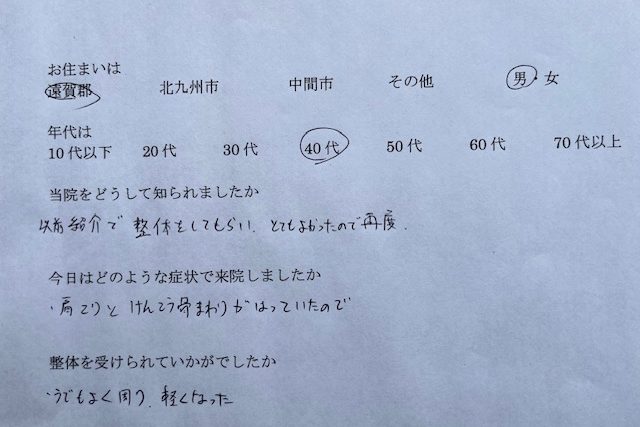 お住まいは
遠賀郡 北九州市 中間市 その他 男・女
年代は
10代以下 20代 30代 40代 50代 60代 70代以上
当院をどうして知られましたか
以前紹介で整体をしてもらい、とてもよかったので再度.
今日はどのような症状で来院しましたか
・肩こりと けんこう骨まわりがはっていたので
整体を受けられていかがでしたか
・うでもよく回り、軽くなった